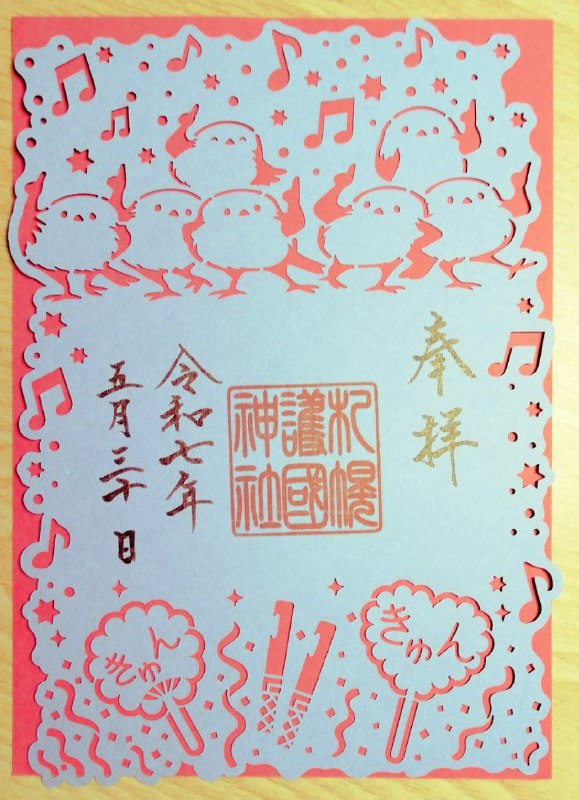 奉拝
札幌
護國
神社
令和七年
五月三十日
きゅん
きゅん